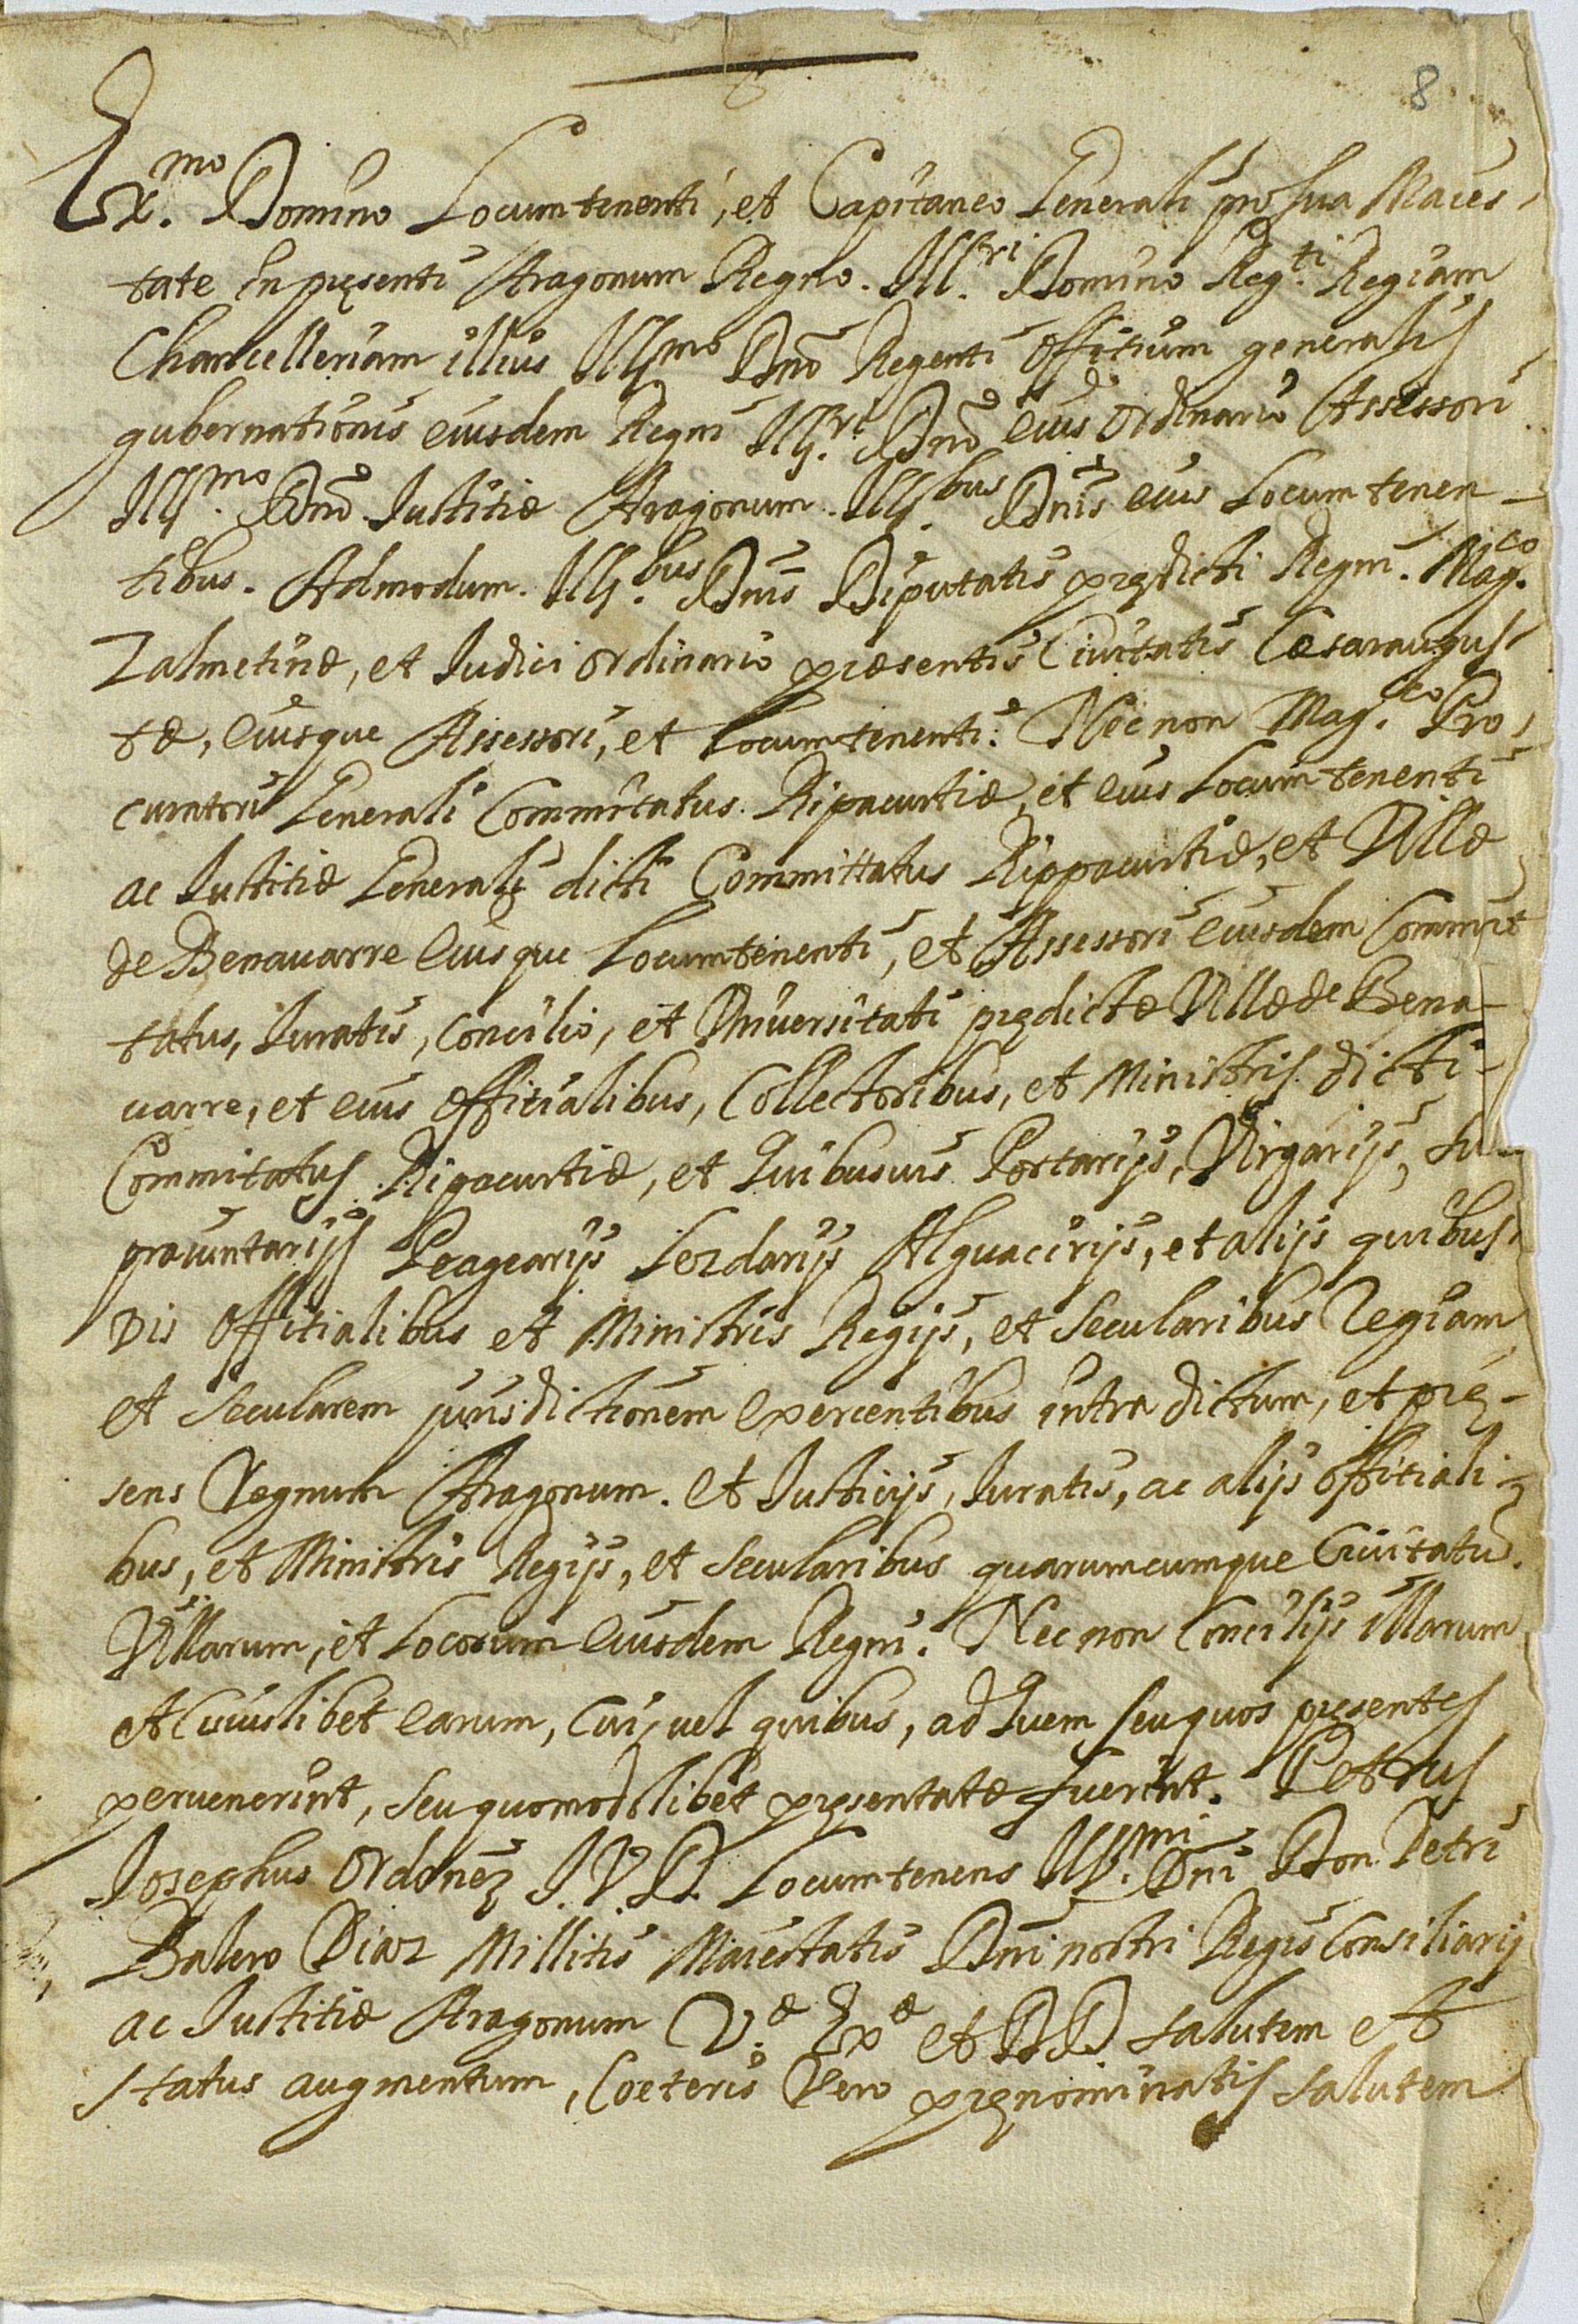 8
Ex.mo Domino Locumtenenti, et Capitaneo Generali pro sua Maies-
tate in pręsenti Aragonum Regno. Ill.tri Domino Reg.ti Regiam
Chancelleriam illius Ill.mo Dno Regenti offitium generalis
gubernationis eiusdem Regni Ill.tri Dno eius ordinario Assessori
Ill.mo Dno Iustitiæ Aragonum. Ill.bus Dnis eius Locumtenen-
tibus. Admodum. Ill.bus Dnis Diputatis prędicti Regni. Mag.co
Zalmetinæ, et Iudici ordinario præsentis Ciuitatis Cæsaraugus-
tæ, eiusque Assessori, et Locumtenenti. Nec non Mag.co Pro-
curatori Generali Commitatus Ripacurtiæ, et eius Locumtenenti
ac Iustitiæ Generali dicti Committatus Rippacurtiæ, et Villæ
de Benauarre eiusque Locumtenenti, et Assessori eiusdem Commit
tatus, Iuratis, Concilio, et Vniversitati prędictæ Villæ de Bena-
uarre, et eius offitialibus, Collectoribus, et Ministris dicti-
Commitatus Ripacurtiæ, et quibusuis Portarijs, Virgarijs, su-
praiuntarijs Peagearijs Lezdarijs Alguacirijs, et alijs quibus-
vis offitialibus et Ministris Regijs, et secularibus Regiam
et secularem jurisdictionem exercentibus intra dictum, et prę-
sens Regnum Aragonum. et Iusticijs, Iuratis, ac alijs offitiali-
bus, et Ministris Regijs, et secularibus quarumcumque Ciuitatū.
Villarum, et Locorum eiusdem Regni. Nec non Concilijs illarum
et cuiuslibet earum, cui, uel quibus, ad quem seu quos pręsentes
peruenerint, seu quomodolibet pręsentatæ fuerint. Petrus
Iosephus Ordoñez I.V.D. Locumtenens Ill.mi Dni Don Petri
Balero Diaz Millitis Maiestatis Dni nostri Regis Consiliarij
ac Iustitiæ Aragonum V.æ Exæ et DD salutem et
status augmentum, Cœteris Vero pręnominatis salutem